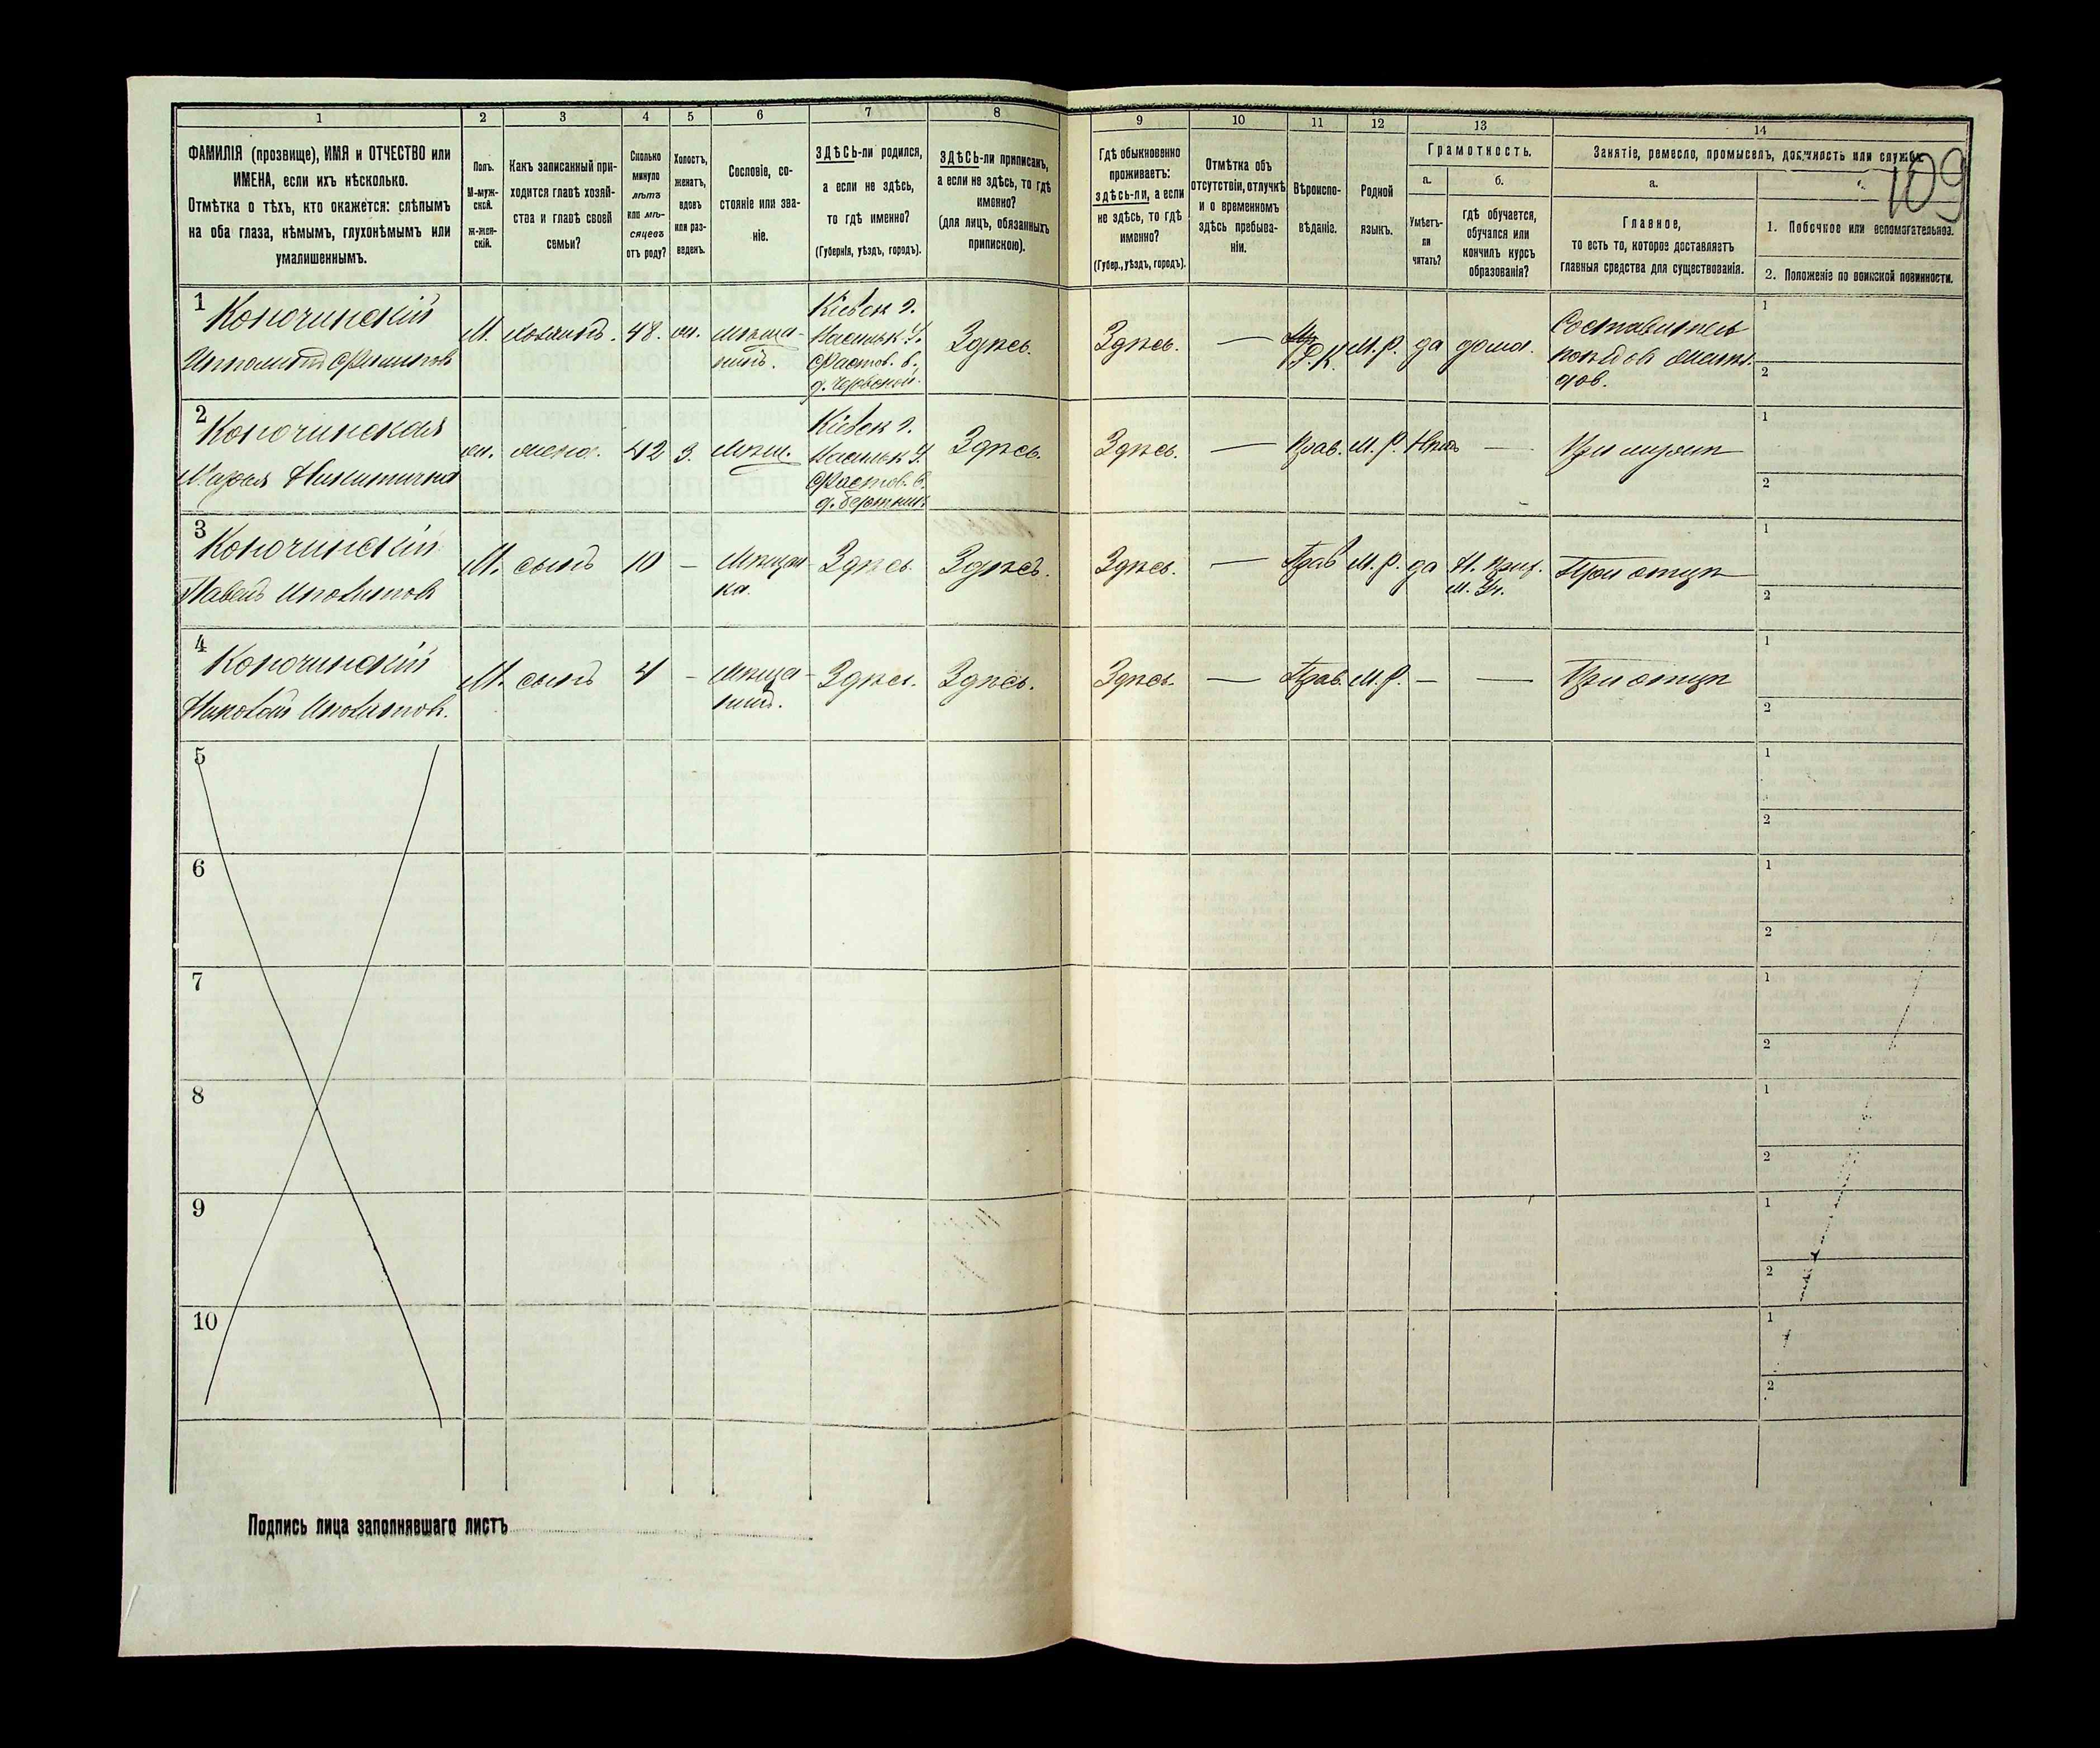 1
2
3
4
5
6
7
8
9
10
11
12
13
14
ФАМИЛІЯ (прозвище), ИМЯ и ОТЧЕСТВО или
ИМЕНА, если ихъ нѣсколько.
Отмѣтка о тѣхъ, кто окажется: слѣпымъ
на оба глаза, нѣмымъ, глухонѣмымъ или
умалишеннымъ.
Полъ.
М-муж-
ской.
Ж-жен-
скій.
Какъ записанный при-
ходится главѣ хозяй-
ства и главѣ своей
семьи?
Сколько
минуло
лѣтъ
или мѣ-
сяцевъ
отъ роду?
Холостъ,
женатъ,
вдовъ
или раз-
веденъ.
Сословіе, со-
стояніе или зва-
ніе.
ЗДѢСЬ-ли родился,
а если не здѣсь,
то гдѣ именно?
(Губернія, уѣздъ, городъ).
ЗДѢСЬ-ли приписанъ,
а если не здѣсь, то гдѣ
именно?
(для лицъ, обязанныхъ
припискою).
Гдѣ обыкновенно
проживаетъ:
здѣсь-ли, а если
не здѣсь, то гдѣ
именно?
(Губер., уѣздъ, городъ).
Отмѣтка объ
отсутствіи, отлучкѣ
и о временномъ
здѣсь пребыва-
ніи.
Вѣроиспо-
вѣданіе.
Родной
языкъ.
Грамотность.
а.
б.
Умѣетъ-
ли
читать?
гдѣ обучается,
обучался или
кончилъ курсъ
образованія?
Занятіе, ремесло, промыселъ, должность или служба.
109
а.
Главное,
то есть то, которое доставляетъ
главныя средства для существованія.
1. Побочное или вспомогательное.
2. Положеніе по воинской повинности.
1
Колочинскій
М. хозяинъ. 48. ж. мѣща-
нинъ.
Кіевск г.
Васильк у.
Фастов. в.
Здѣсь.
Здѣсь. — Р.К. М.Р. да дома.
Составитель
1
2
2
Колочинская
Марья Никитична
ж. жена. 42 З. мѣщ.
Кіевск г.
Васильк у.
Фастов. в.
Здѣсь.
Здѣсь. — Прав. М.Р. Нѣтъ — При мужѣ
1
2
3
Колочинскій
Павелъ Иполитов
М. сынъ 10 — Мѣщан-
ка.
Здѣсь Здѣсь.
Здѣсь. — Прав М.Р. да
При отцѣ
1
2
4
Колочинскій
Николай Иполитов.
М. сынъ 4 — Мѣща-
нинъ.
Здѣсь. Здѣсь.
Здѣсь. — Прав. М.Р. — — При отцѣ
1
2
5
1
2
6
1
2
7
1
2
8
1
2
9
1
2
10
1
2
Подпись лица заполнявшаго листъ